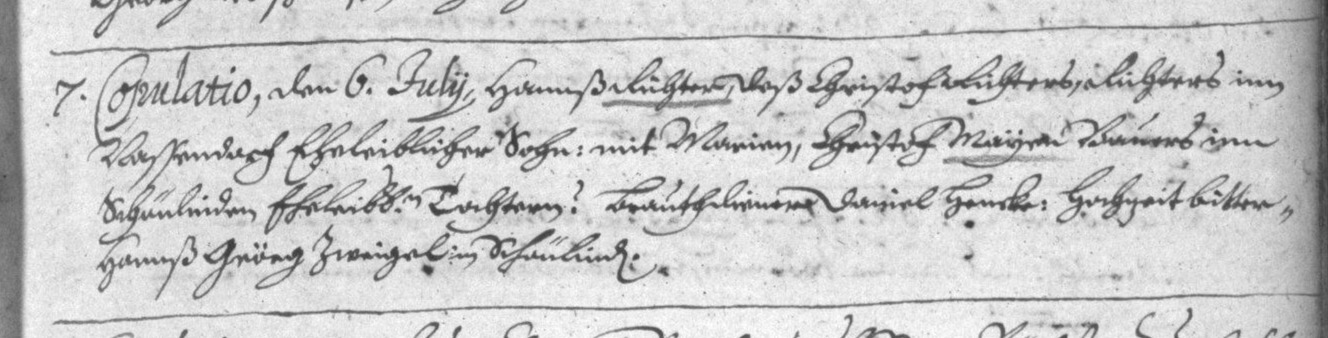 7. Copulatio, den 6. July, Hannß Richter, deß Christof Richters, Richters inn
Vassendorf Eheleiblicher Sohn: mit Marien, Christof Mayen Bauers inn
Schönlinden Eheleibl:n Tochtern: Brauthdiener Daniel Hencke: Hochzeit bitter
Hannß Geörg Zweigel in Schönlind: